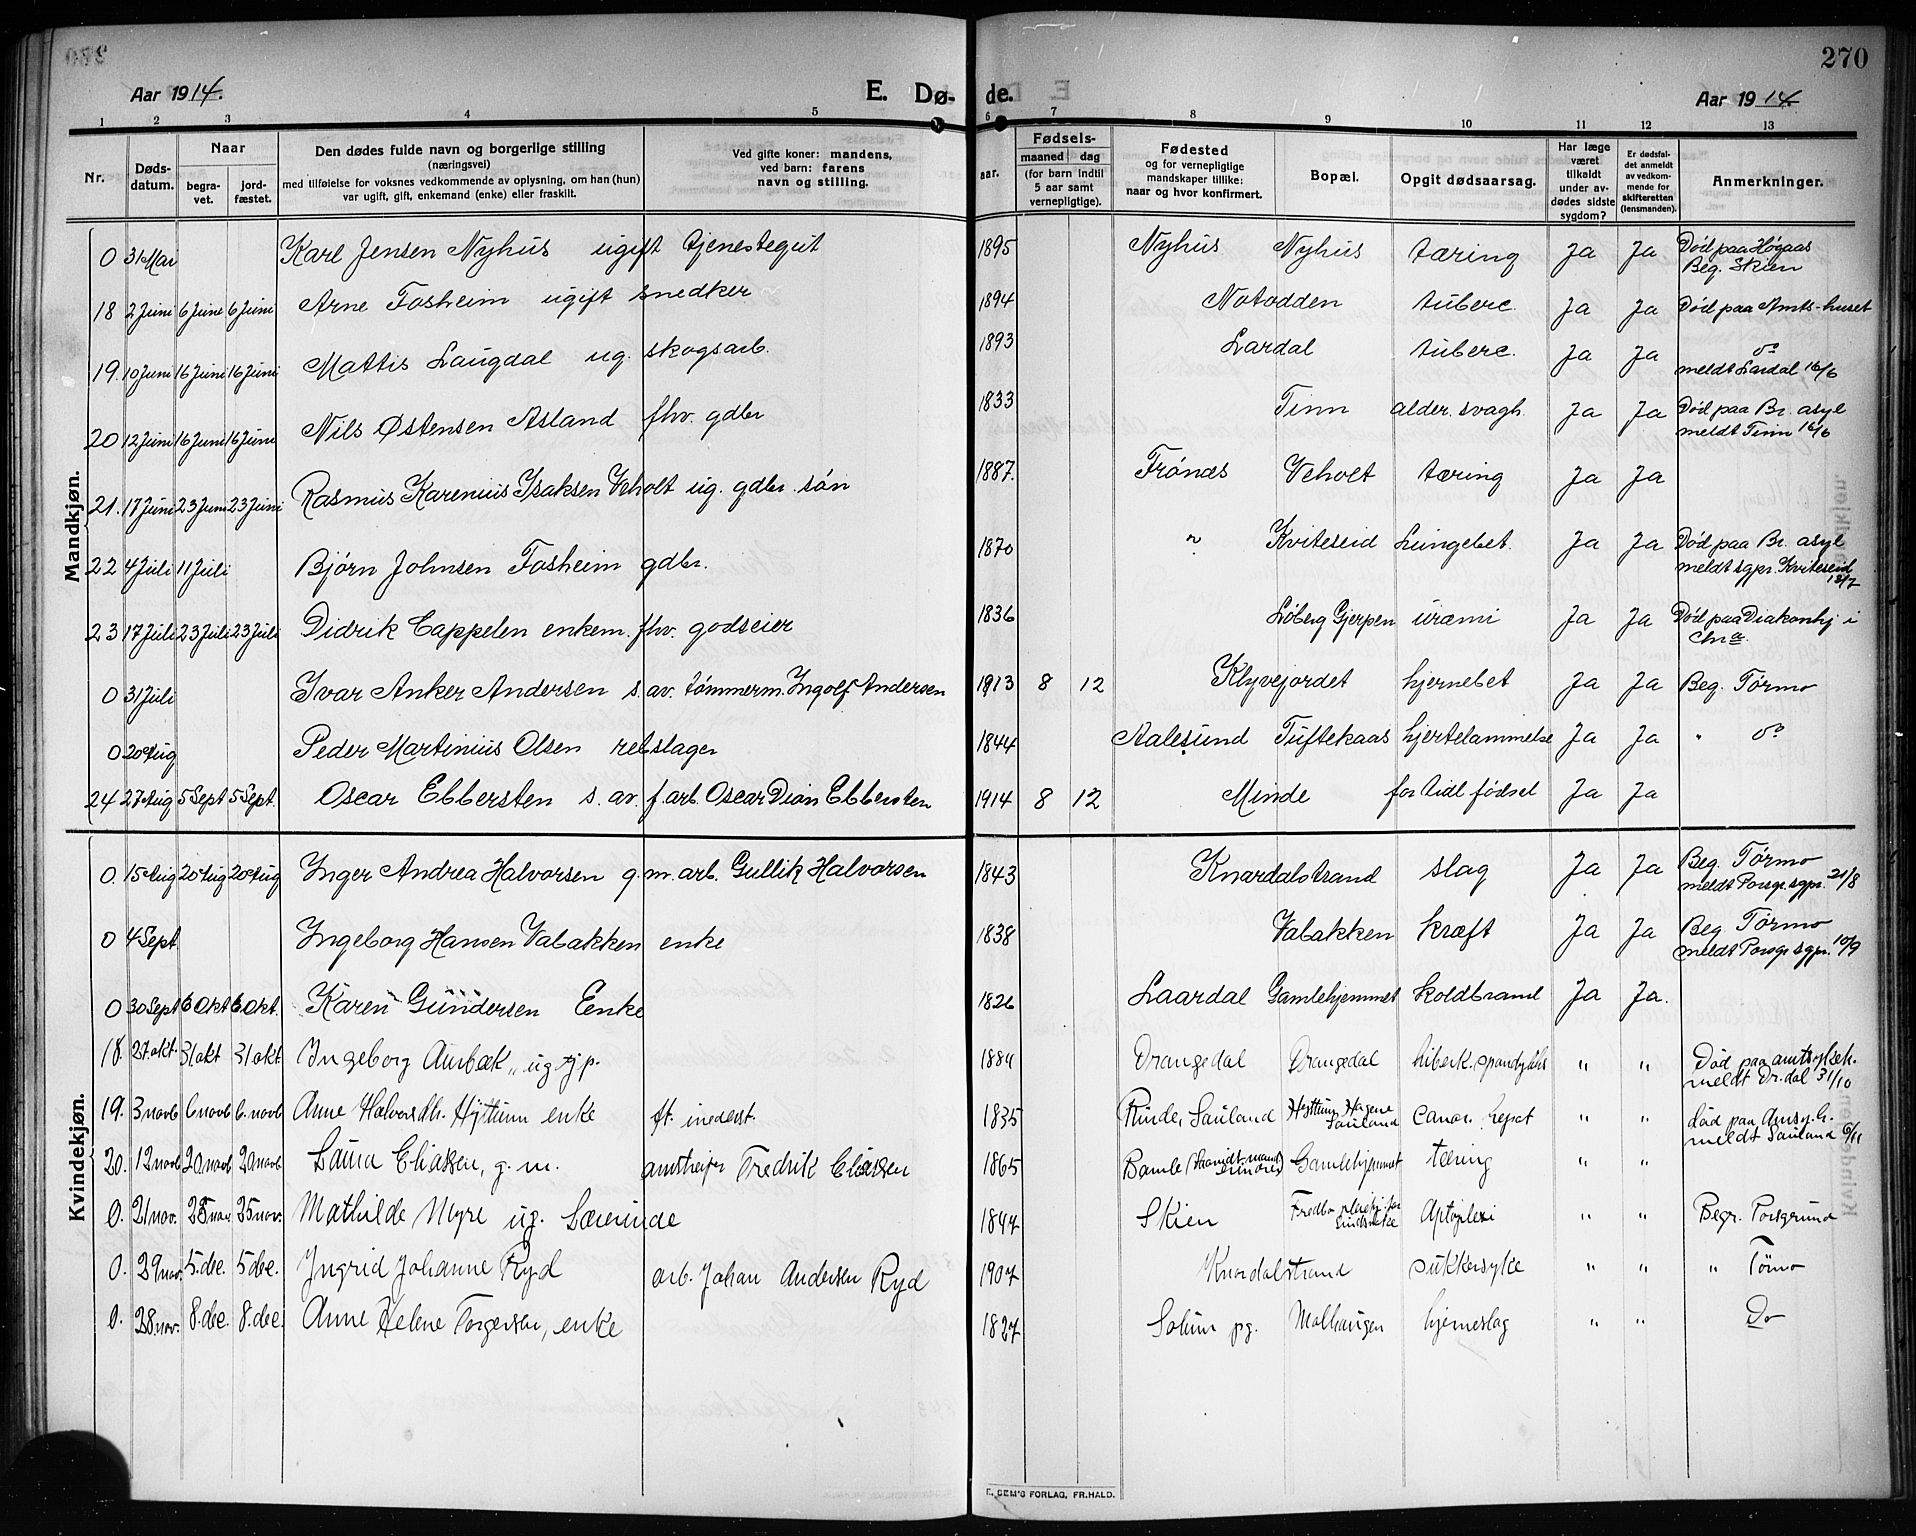 270
Aar 1914. E. Dø- de. Aar 1914
1 2 3 4 5 6 7 8 9 10 11 12 13
Nr. Døds-datum. Naar begra-vet. jord-fæstet. Den dødes fulde navn og borgerlige stilling (næringsvei) med tilføielse for voksnes vedkommende av oplysning, om han (hun) var ugift, gift, enkemand (enke) eller fraskilt. Ved gifte koner: mandens, ved barn: farens navn og stilling. aar. Fødsels- maaned dag (for barn indtil 5 aar samt vernepligtige). Fødested og for vernepligtige mandskaper tillike: naar og hvor konfirmert. Bopæl. Opgit dødsaarsag. Har læge været tilkaldt under av-dødes sidste sygdom? Er dødsfal-det anmeldt av vedkom-mende for skifteretten (lensmanden). Anmerkninger.
Mandkjøn.
0 31 Mai Karl Jensen Nyhus ugift tjenestegut 1895 Nyhus Nyhus tæring Ja Ja Død paa Høgaas
Beg. Skien
18 2 Juni 6 June 6 Juni Arne Fosheim ugift snedker 1894 Notodden tuberc. Ja Ja Død paa Amts-huset
19. 10 Juni 16 Juni 16 Juni Mattis Laugdal ug. skogsarb. 1893 Lardal tuberc. Ja Ja do
meldt Lardal 16/6
20 12 Juni 16 Juni 16 Juni Nils Østensen Asland fhv. gdbr 1833 Tinn alder. svagh. Ja Ja Død paa Br. asyl
meldt Tinn 16/6
21. 17 Juni 23 Juni 23 Juni Rasmus Karenius Ysaksen Veholt ug. gdbr. søn 1887. Frónæs Veholt tæring Ja Ja
22 4 Juli 11 Juli Bjørn Johnsen Fosheim gdbr. 1870 " Kviteseid Lungebet. Ja Ja Død paa Br. asyl
meldt sgpr. Kviteseid
23 17 Juli 23 Juli 23 Juli Didrik Cappelen enkem. fhv. godseier 1836 Løberg Gjerpen uræmi Ja Ja Død paa Diakonhj i
Chra.
0 31 Juli Ivar Anker Andersen s. av. tømmerm. Ingolf Andersen 1913 8 12 Klyvejordet hjernebet Ja Ja Beg. Tørmo
0 20 Aug Peder Martinius Olsen rebslager 1844 Aalesund Tuftekaas hjertelammelse Ja Ja " do
24 27 Aug 5 Sept 5 Sept. Oscar Ebbersten s. av. f. arb. Oscar Dion Ebbersten 1914 8 12 Minde for tidl fødsel Ja Ja
Kvindekjøn.
0. 15 Aug 20 Aug 20 Aug Inger Andrea Halvorsen g. m. arb. Gullik Halvorsen 1843 Knardalstrand slag Ja Ja Beg. Tørmo
meldt Porsgr. sgpr. 21/8
0 4 Sept Ingeborg Hansen Vabakken enke 1838 Vabakken kræft Ja Ja Beg Tørmo
meldt Porsgr sgpr. 10/9
0 30 Sept 6 Okt 6 Okt. Karen Gundersen Eenke 1826 Laardal Gamlehjemmet koldbrand Ja Ja.
18. 27 okt. 31 okt 31 okt Ingeborg Aasbæk, ug 1884 Drangedal Drangedal " " Død paa amtssykeh.
meldt Dr. dal 31/10
19. 3 novb 6 novb 6. novb Anne Halvorsdh. Hyttum enke ft. inderst. 1835 Rinde, Sauland Hyttum, Hagene Sauland cancr. hepat " " død paa
meldt Sauland 6/11
20. 12 novb 20 novb 20 novb Laura Eliassen, g. m. Fredrik Eliassen 1865 Bamle Gamlehjemmet tæring " "
0. 21 nov. 25 nov 25 nov. Mathilde Myre ug. Lærerinde 1844 Skien Apoplexi " " Begr. Porsgrund
0. 29 nov. 5. dec. 5 dec. Ingrid Johanne Ryd arb. Johan Andersen Ryd 1907 Knardalstrand sukkersyke " " " Tørmo
0. 28 nov. 8. dec. 8. dec. Anne Helene Torgersen, enke 1827 Solum pg. Molhaugen hjerneslag " " Do
E. SEM'S FORLAG, FR.HALD.